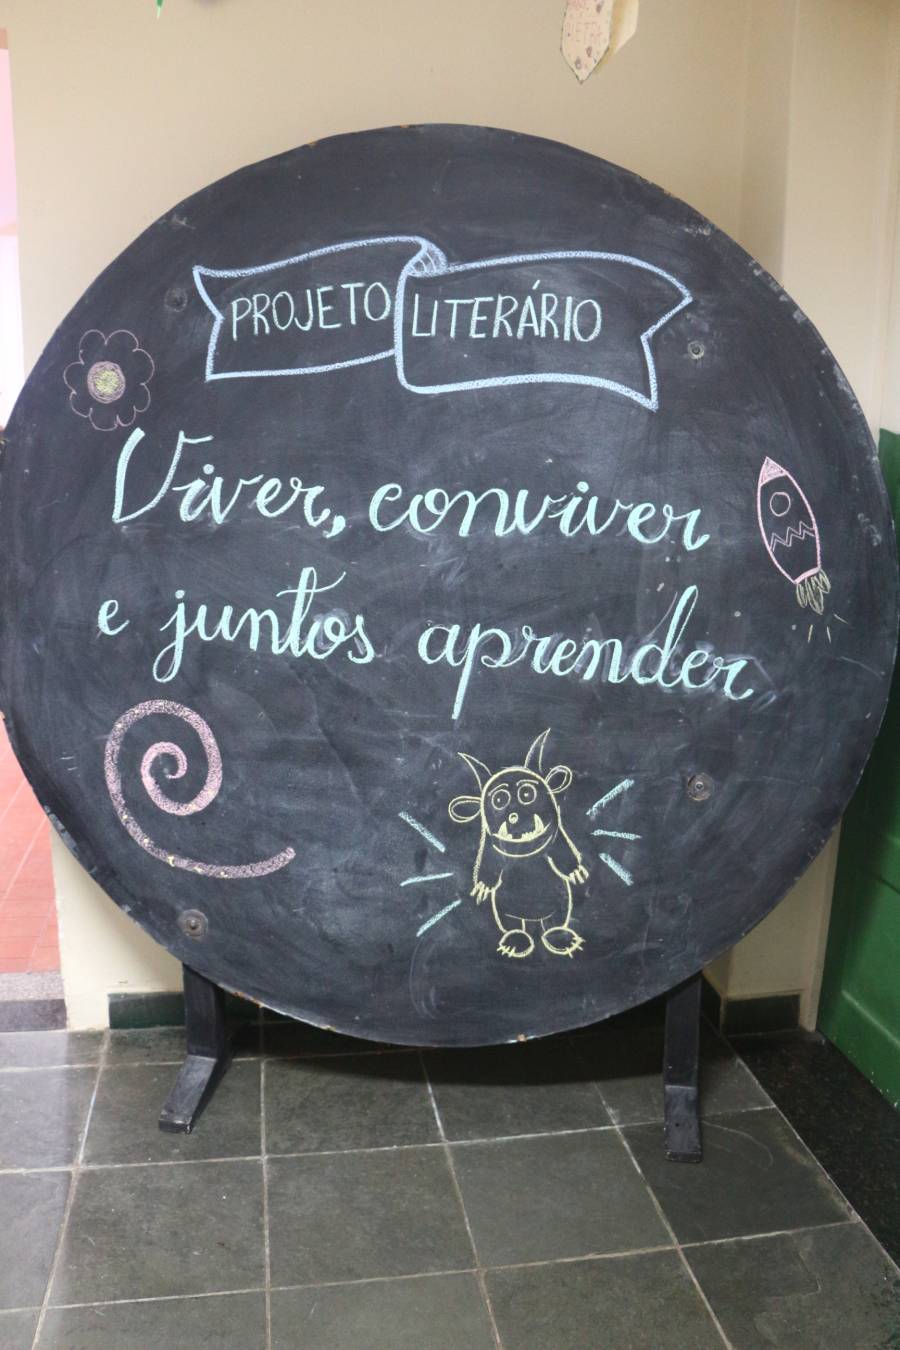 PROJETO LITERÁRIO
Viver, conviver
e juntos aprender